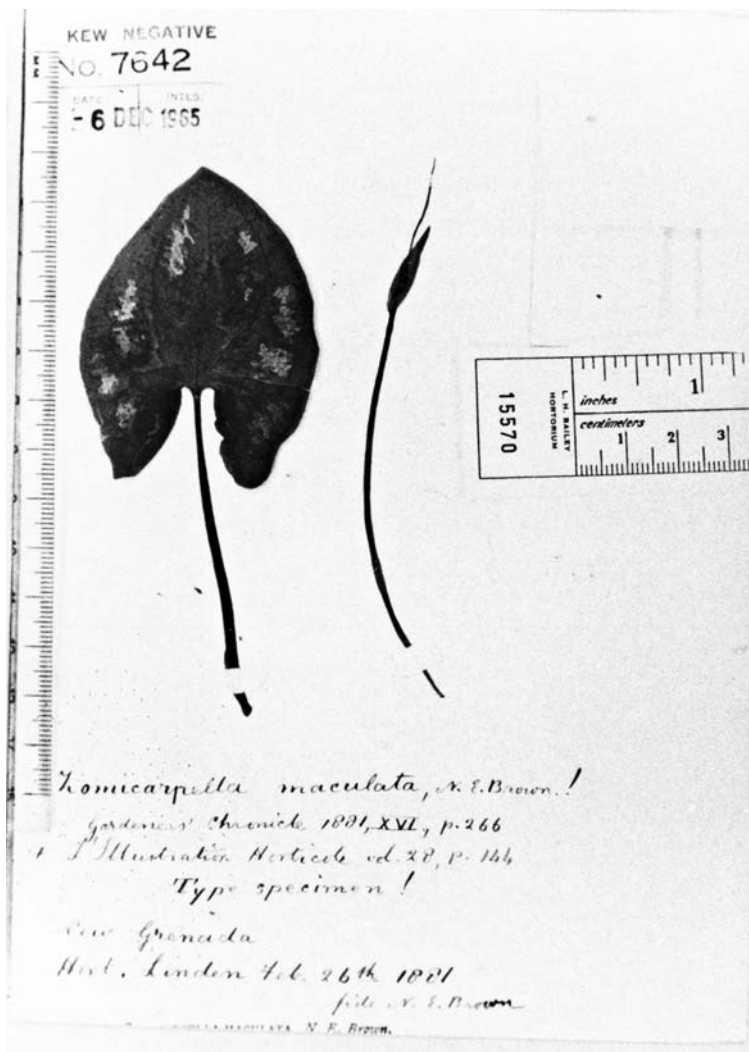 KEW NEGATIVE
No. 7642
DATE INTLS.
- 6 DEC 1965
15570
L. H. BAILEY
HORTORIUM
inches
1
centimeters
1 2 3
Zomicarpella maculata, N. E. Brown!
Gardeners' Chronicle 1881, XVI, p. 266
L'Illustration Horticole vol. 28, p. 144
Type specimen!
New Grenada
Hort. Linden Feb. 26th 1881
fide N. E. Brown
MACULATA N. E. Brown.